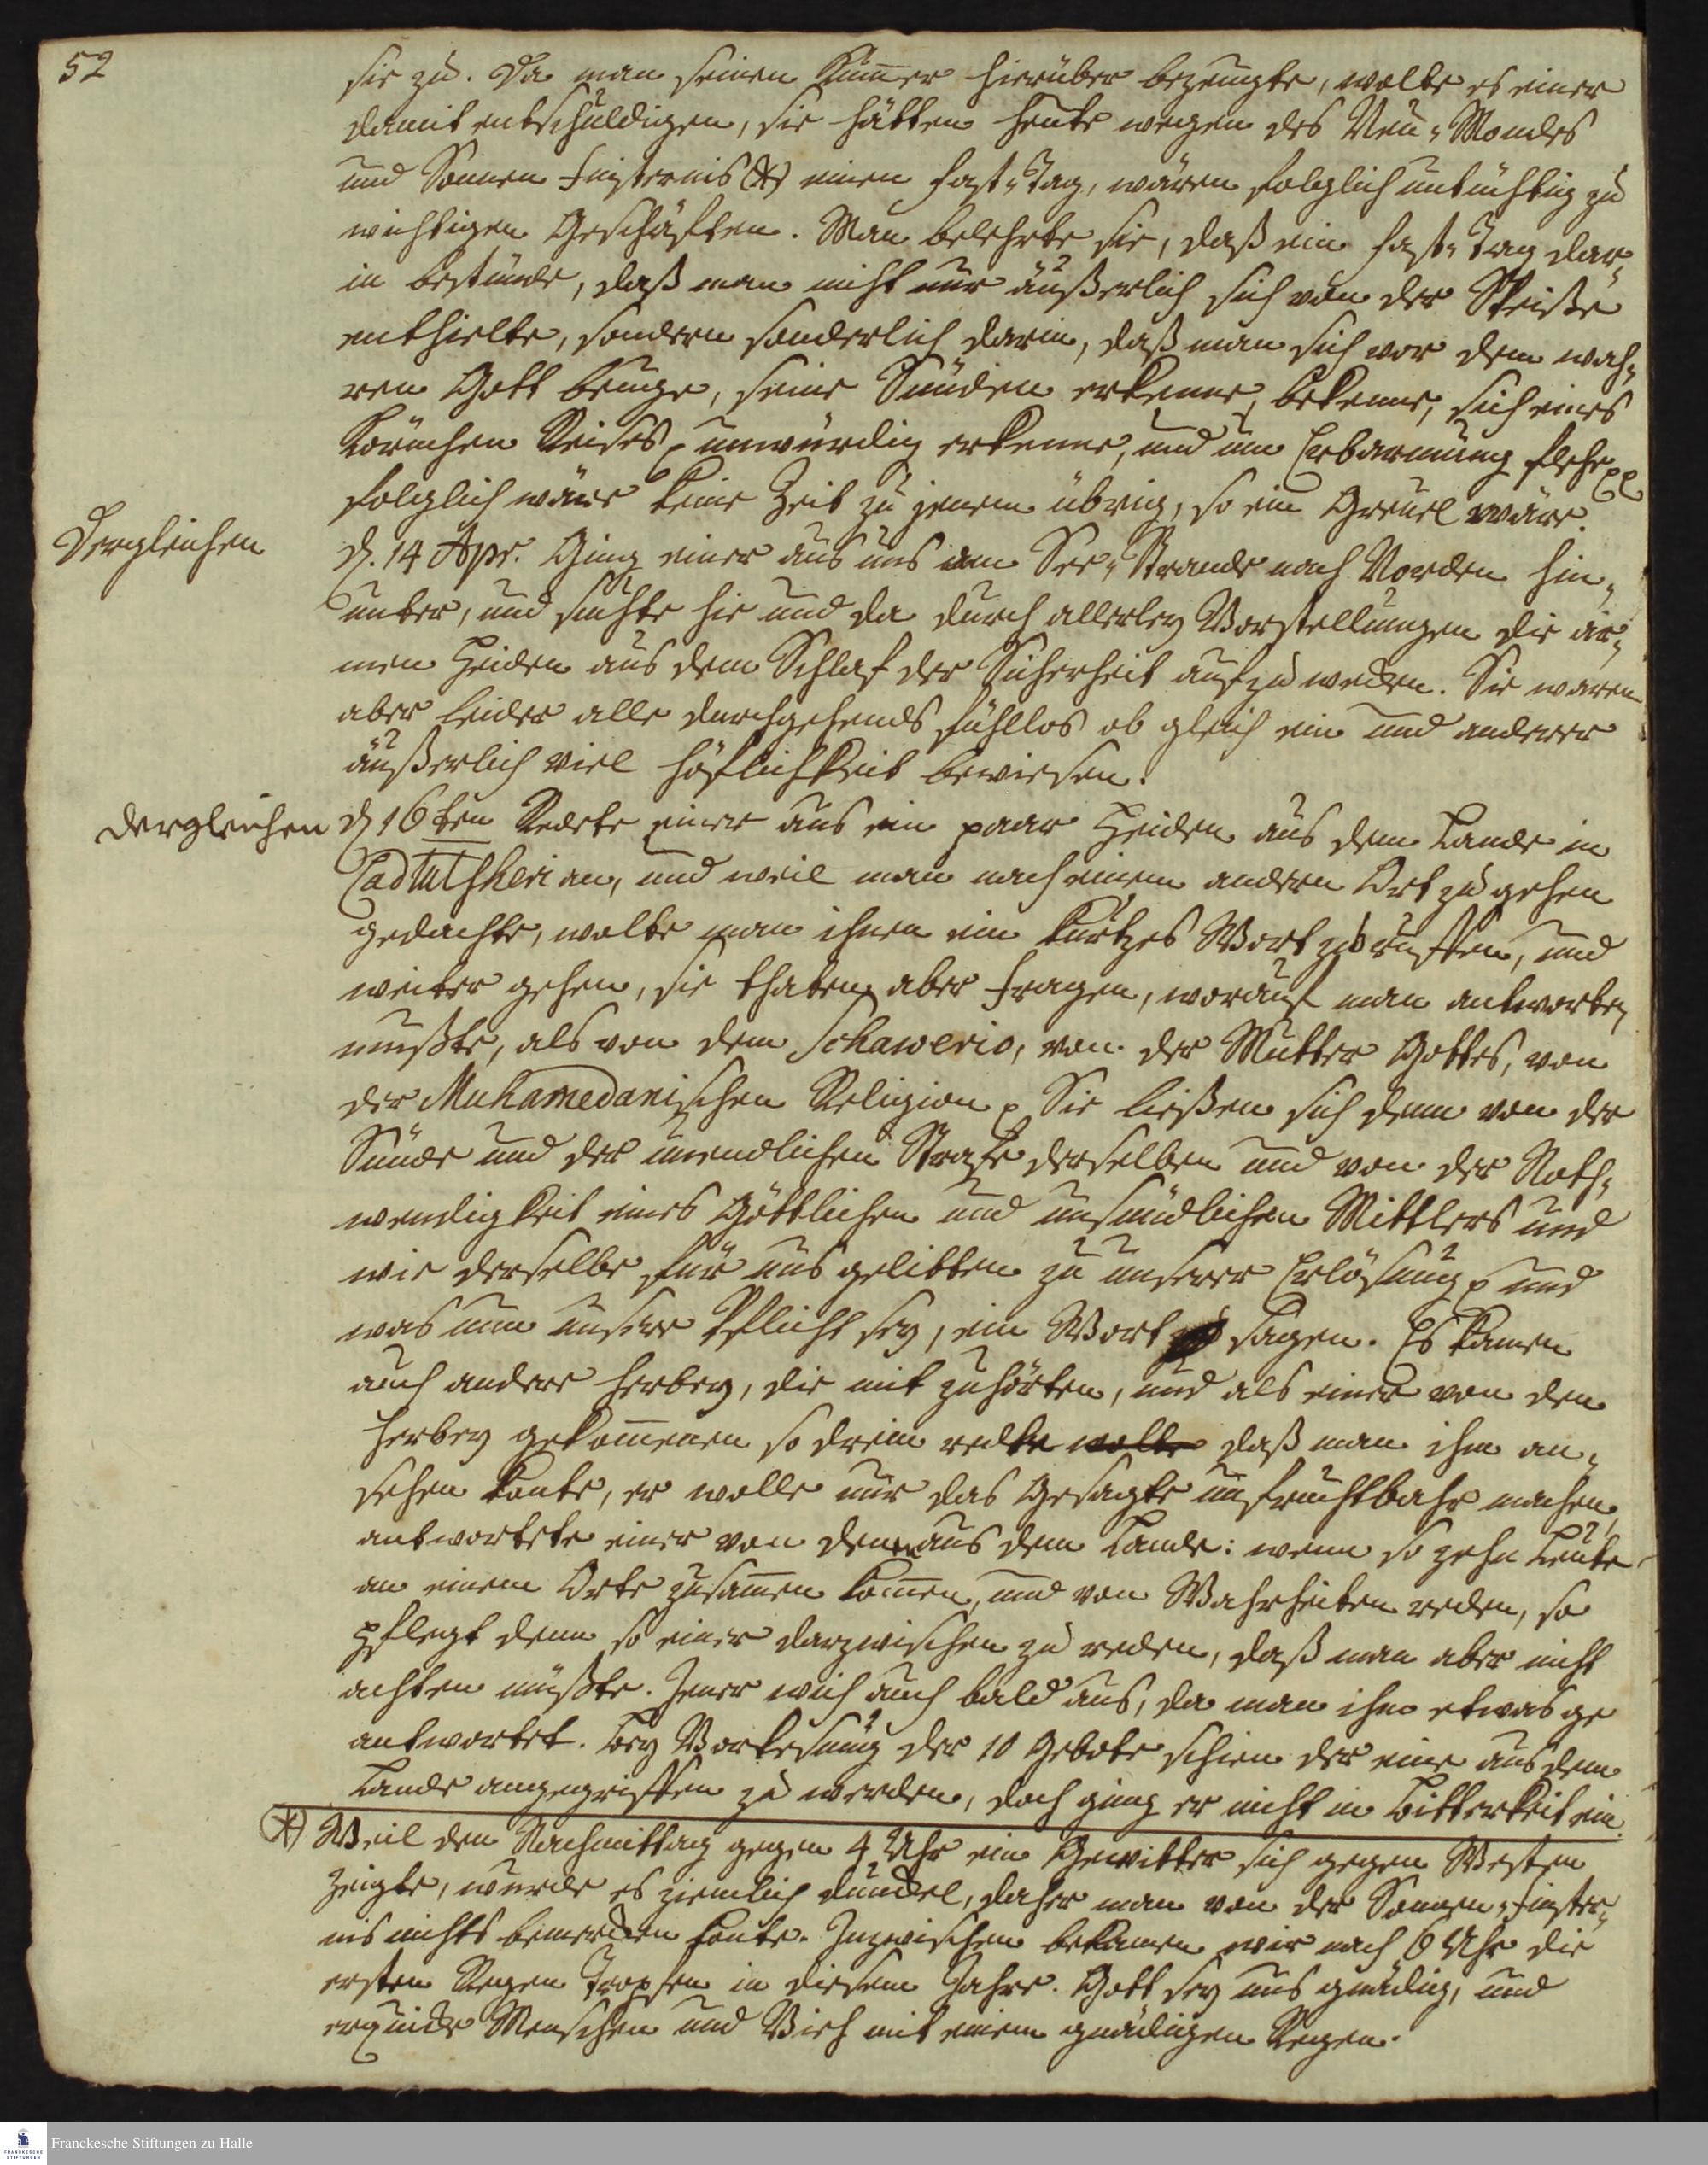 52
sie zu. Da man seinen Kum̅er hierüber bezeugte, wolte es einer
damit entschuldigen, sie hätten heute wegen des Neu-Mondes
und Sonnen Finsternis (*) einen Fast-Tag, wären folglich untüchtig zu
wichtigen Geschäften. Man belehrte sie, daß ein Fast-Tag dar-
in bestünde, daß man nicht nur äußerlich sich von der Speise
enthielte, sondern sonderlich darin, daß man sich vor dem wah-
ren Gott beuge, seine Sünden erkenne, bekenne, sich eines
Körnchen Reises unwürdig erkenne, und um Erbarmung flehe
folglich wäre keine Zeit zu jenem übrig, so ein Greuel wäre.
Dergleichen
d. 14 Apr. Ging einer aus uns am See-Strande nach Norden hin-
unter, und suchte hie und da durch allerley Vorstellungen die ar-
men Heiden aus dem Schlaf der Sicherheit aufzuwecken. Sie waren
aber leider alle durchgehends fühllos ob gleich ein und anderer
äußerlich viel Höflichkeit bewiesen.
dergleichen
d 16ten Redete einer aus ein paar Heiden aus dem Lande in
Cadtutsheri an, und weil man nach einem andern Ort zu gehen
gedachte, wolte man ihnen ein kurtzes Wort zuruffen, und
weiter gehen, sie thaten aber Fragen, worauf man antworten
mußte, als von dem Schawerio, von der Mutter Gottes, von
der Muhamedanischen Religion Sie ließen sich denn von der
Sünde und der unendlichen Strafe derselben und von der Noth-
wendigkeit eines Göttlichen und unsündlichen Mittlers und
wie derselbe für uns gelitten zu unserer Erlösung und
was nun unsere Pflicht sey, ein Wort sagen. Es kamen
auch andere herbey, die mit zuhörten, und als einer von den
herbey gekom̅enen so drein redte wolte daß man ihm an-
sehen konte, er wolle nur das Gesagte unfruchtbahr machen,
antwortete einer von denen aus dem Lande: wenn so zehn Leute
an einem Orte zusam̅en kom̅en, und von Wahrheiten reden, so
pflegt denn so einer darzwischen zu reden, daß man aber nicht
achten müßte. Jener wich auch bald aus, da man ihm etwas ge
antwortet. Bey Vorlesung der 10 Gebote schien der eine aus dem
Lande angegriffen zu werden, doch ging er nicht in Bitterkeit ein.
(*) Weil den Nachmittag gegen 4 Uhr ein Gewitter sich gegen Westen
zeigte, wurde es ziemlich dunckel, daher man von der Sonnen-Finster-
nis nichts bemercken konte. Inzwischen bekamen wir nach 6 Uhr die
ersten Regen Tropfen in diesem Jahre. Gott sey uns gnädig, und
erquicke Menschen und Vieh mit einem gnädigen Regen.
Franckesche Stiftungen zu Halle